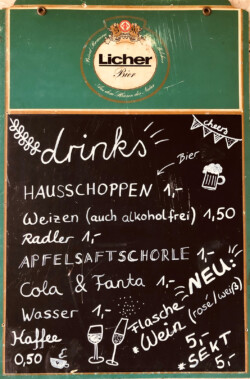 Licher
Bier
Aus dem Herzen der Natur
drinks
cheers
Bier
HAUSSCHOPPEN 1,-
Weizen (auch alkoholfrei) 1,50
Radler 1,-
APFELSAFTSCHORLE 1,-
Cola & Fanta 1,-
NEU:
Wasser 1,-
Flasche
*Wein (rosé/weiß)
5,-
Kaffee
0,50
*SEKT
5,-